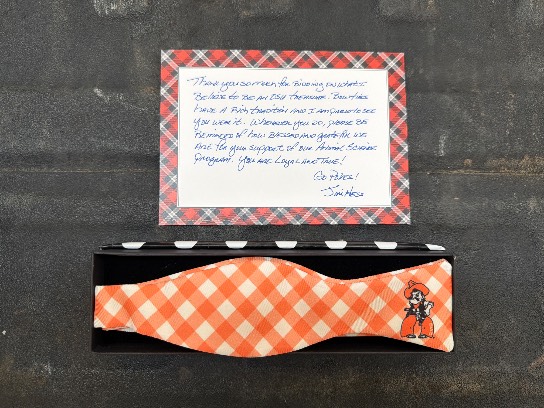 Thank you so much for bidding on what I
believe to be an OSU treasure. Bow ties
have a rich tradition and I am proud to see
you wear it. Whenever you do, please be
reminded of how blessed and grateful we
are for your support of our Animal Science
program. You are Loyal and True!
Go Pokes!